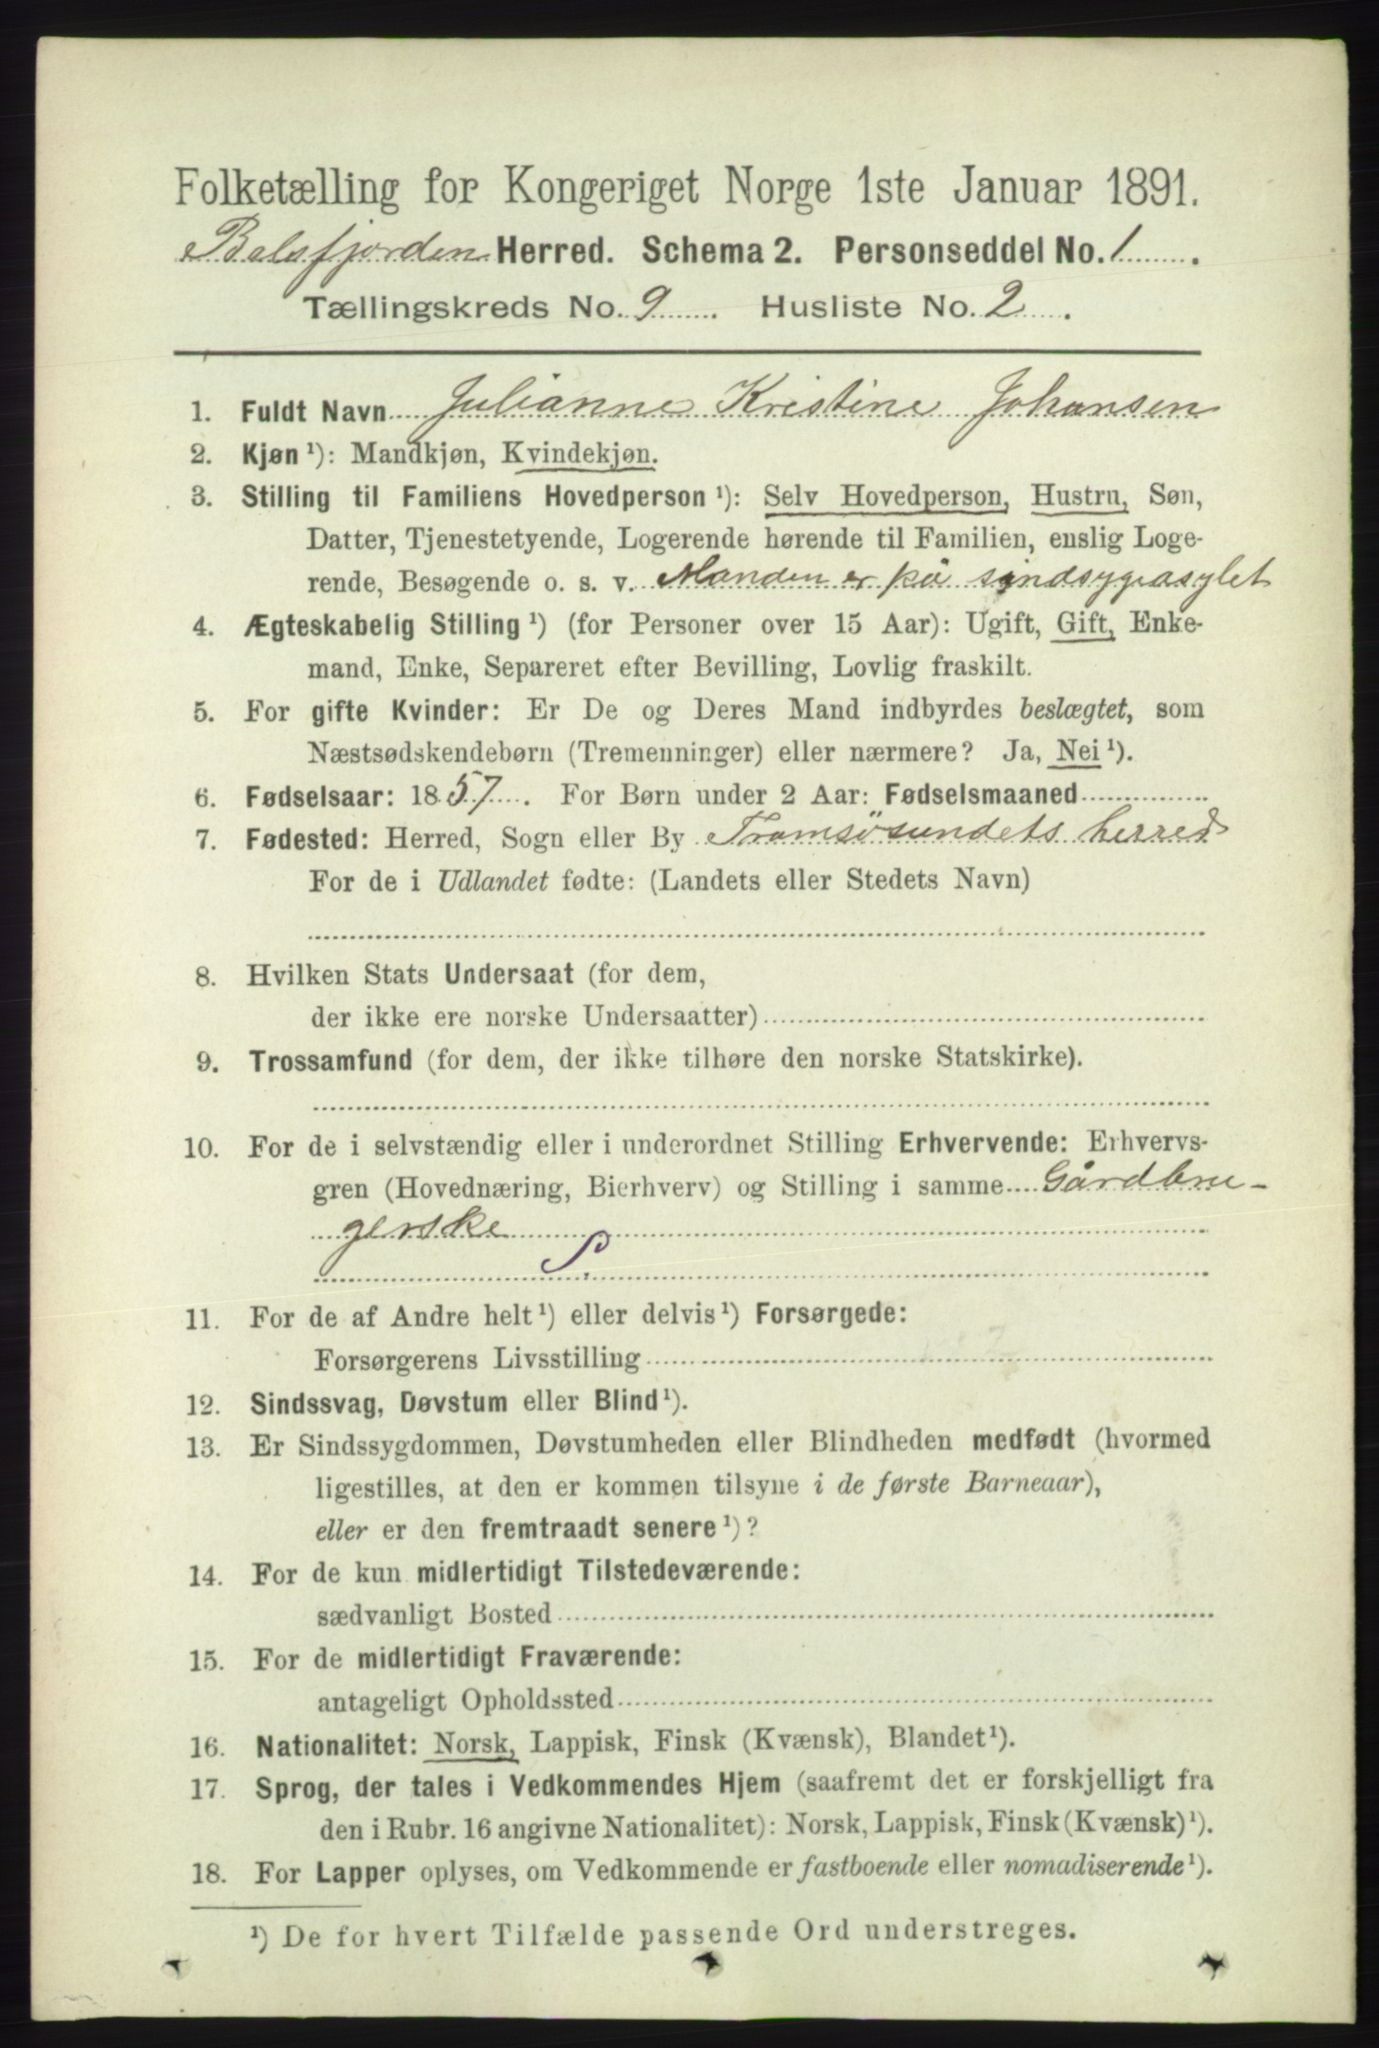 Folketælling for Kongeriget Norge 1ste Januar 1891.
Balsfjorden Herred. Schema 2. Personseddel No. 1.
Tællingskreds No. 9. Husliste No. 2.
1. Fuldt Navn Julianne Kristine Johansen
2. Kjøn¹): Mandkjøn, Kvindekjøn.
3. Stilling til Familiens Hovedperson¹): Selv Hovedperson, Hustru, Søn,
Datter, Tjenestetyende, Logerende hørende til Familien, enslig Loge-
rende, Besøgende o. s. v. Manden er på sindsygeasylet
4. Ægteskabelig Stilling¹) (for Personer over 15 Aar): Ugift, Gift, Enke-
mand, Enke, Separeret efter Bevilling, Lovlig fraskilt.
5. For gifte Kvinder: Er De og Deres Mand indbyrdes beslægtet, som
Næstsødskendebørn (Tremenninger) eller nærmere? Ja, Nei¹).
6. Fødselsaar: 1857. For Børn under 2 Aar: Fødselsmaaned
7. Fødested: Herred, Sogn eller By Tromsøsundets herred
For de i Udlandet fødte: (Landets eller Stedets Navn)
8. Hvilken Stats Undersaat (for dem,
der ikke ere norske Undersaatter)
9. Trossamfund (for dem, der ikke tilhøre den norske Statskirke).
10. For de i selvstændig eller i underordnet Stilling Erhvervende: Erhvervs-
gren (Hovednæring, Bierhverv) og Stilling i samme Gårdbru-
gerske
S.
11. For de af Andre helt¹) eller delvis¹) Forsørgede:
Forsørgerens Livsstilling
12. Sindssvag, Døvstum eller Blind¹).
13. Er Sindssygdommen, Døvstumheden eller Blindheden medfødt (hvormed
ligestilles, at den er kommen tilsyne i de første Barneaar),
eller er den fremtraadt senere¹)?
14. For de kun midlertidigt Tilstedeværende:
sædvanligt Bosted
15. For de midlertidigt Fraværende:
antageligt Opholdssted
16. Nationalitet: Norsk, Lappisk, Finsk (Kvænsk), Blandet¹).
17. Sprog, der tales i Vedkommendes Hjem (saafremt det er forskjelligt fra
den i Rubr. 16 angivne Nationalitet): Norsk, Lappisk, Finsk (Kvænsk)¹).
18. For Lapper oplyses, om Vedkommende er fastboende eller nomadiserende¹).
¹) De for hvert Tilfælde passende Ord understreges.